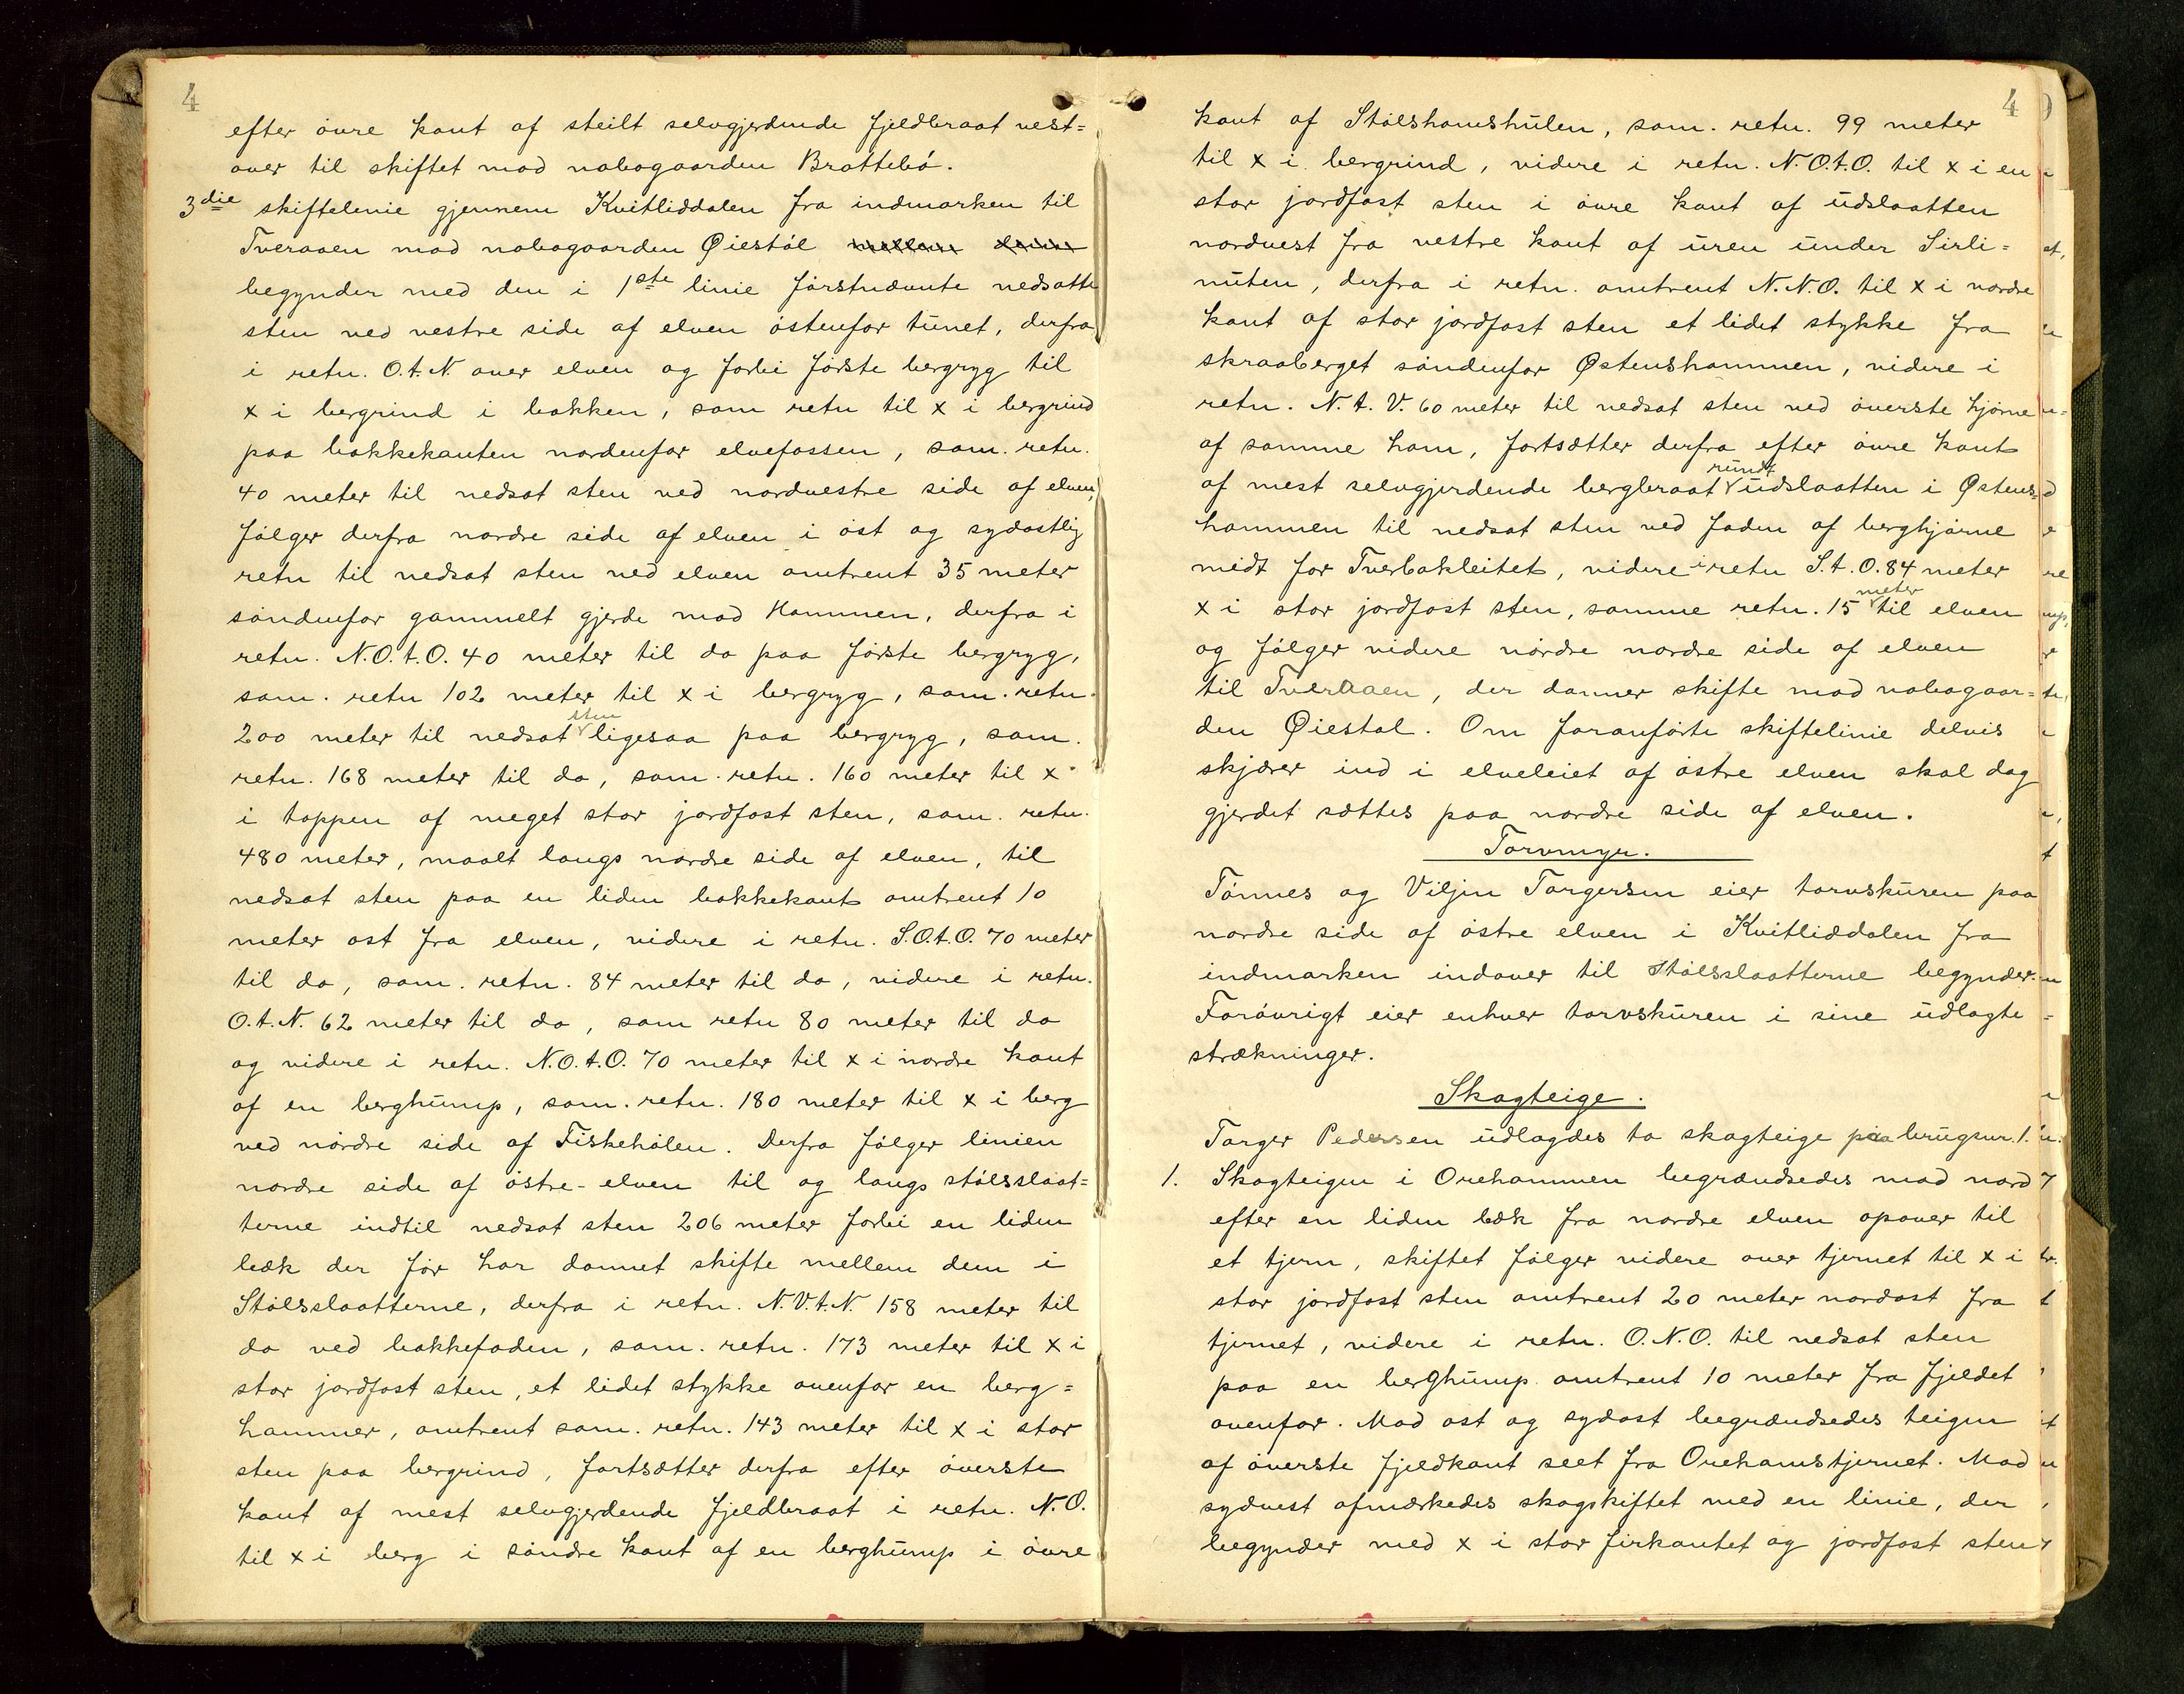 4
efter øvre kant af steilt selvgjerdende fjeldbraat vest=
over til skiftet mod nabogaarden Brattebø.
3die skiftelinie gjennem Kvitliddalen fra indmarken til
Tveraaen mod nabogaarden Øiestøl mellem denne
begynder med den i 1ste linie førstnævnte nedsatte
sten ved vestre side af elven østenfor tunet, derfra
i retn. O.t.N. over elven og forbi første bergryg til
x i bergrind i bakken, sam retn til x i bergrind
paa bakkekanten nordenfor elvefossen, sam. retn.
40 meter til nedsat sten ved nordvestre side af elven,
følger derfra nordre side af elven i øst og sydøstlig
retn til nedsat sten ved elven omtrent 35 meter
søndenfor gammelt gjerde mod Hammen, derfra i
retn. N.O.t.O. 40 meter til do paa første bergryg,
sam. retn 102 meter til x i bergryg, sam. retn.
200 meter til nedsat sten ligesaa paa bergryg, sam.
retn. 168 meter til do, sam. retn. 160 meter til x
i toppen af meget stor jordfast sten, sam. retn.
480 meter, maalt langs nordre side af elven, til
nedsat sten paa en liden bakkekant omtrent 10
meter øst fra elven, videre i retn. S.O.t.O. 70 meter
til do, sam. retn. 84 meter til do, videre i retn.
O.t.N. 62 meter til do, sam retn 80 meter til do
og videre i retn. N.O.t.O. 70 meter til x i nordre kant
af en berghump, sam. retn. 180 meter til x i berg
ved nordre side af Fiskehølen. Derfra følger linien
nordre side af østre-elven til og langs stølsslaat=
terne indtil nedsat sten 206 meter forbi en liden
bæk der før har dannet skifte mellem dem i
Stølsslaatterne, derfra i retn. N.V.t.N. 158 meter til
do ved bakkefoden, sam. retn. 173 meter til x i
stor jordfast sten, et lidet stykke ovenfor en berg=
hammer, omtrent sam. retn. 143 meter til x i stor
sten paa bergrind, fortsætter derfra efter øverste
kant af mest selvgjerdende fjeldbraat i retn. N.O.
til x i berg i søndre kant af en berghump i øvre
4
kant af Stølshamshulen, sam. retn. 99 meter
til x i bergrind, videre i retn. N.O.t.O. til x i en
stor jordfast sten i øvre kant af udslaatten
nordvest fra vestre kant af uren under Sirli=
nuten, derfra i retn. omtrent N.N.O. til x i nordre
kant af stor jordfast sten et lidet stykke fra
skraaberget søndenfor Østenshammen, videre i
retn. N.t.V. 60 meter til nedsat sten ved øverste hjørne
af samme ham, fortsætter derfra efter øvre kant
af mest selvgjerdende bergbraat rundt udslaatten i Østens=
hammen til nedsat sten ved foden af berghjørne
midt for Tverbakleitet, videre i retn S.t.O. 84 meter
x i stor jordfast sten, samme retn. 15 meter til elven
og følger videre nordre nordre side af elven
til Tveraaen, der danner skifte mod nabogaar=
den Øiestøl. Om foranførte skiftelinie delvis
skjærer ind i elveleiet af østre elven skal dog
gjerdet sættes paa nordre side af elven.
Torvmyr.
Tønnes og Viljen Torgersen eier torvskuren paa
nordre side af østre elven i Kvitliddalen fra
indmarken indover til Stølsslaatterne begynder.
Forøvrigt eier enhver torvskuren i sine udlagte
strækninger.
Skogteige.
Torger Pedersen udlagdes to skogteige paa brugsnr. 1.
1. Skogteigen i Orehammen begrændsedes mod nord
efter en liden bæk fra nordre elven opover til
et tjern, skiftet følger videre over tjernet til x i
stor jordfast sten omtrent 20 meter nordøst fra
tjernet, videre i retn. O.N.O. til nedsat sten
paa en berghump omtrent 10 meter fra fjeldet
ovenfor. Mod øst og sydøst begrændsedes teigen
af øverste fjeldkant seet fra Orehamstjernet. Mod
sydvest afmærkedes skogskiftet med en linie, der
begynder med x i stor firkantet og jordfast sten